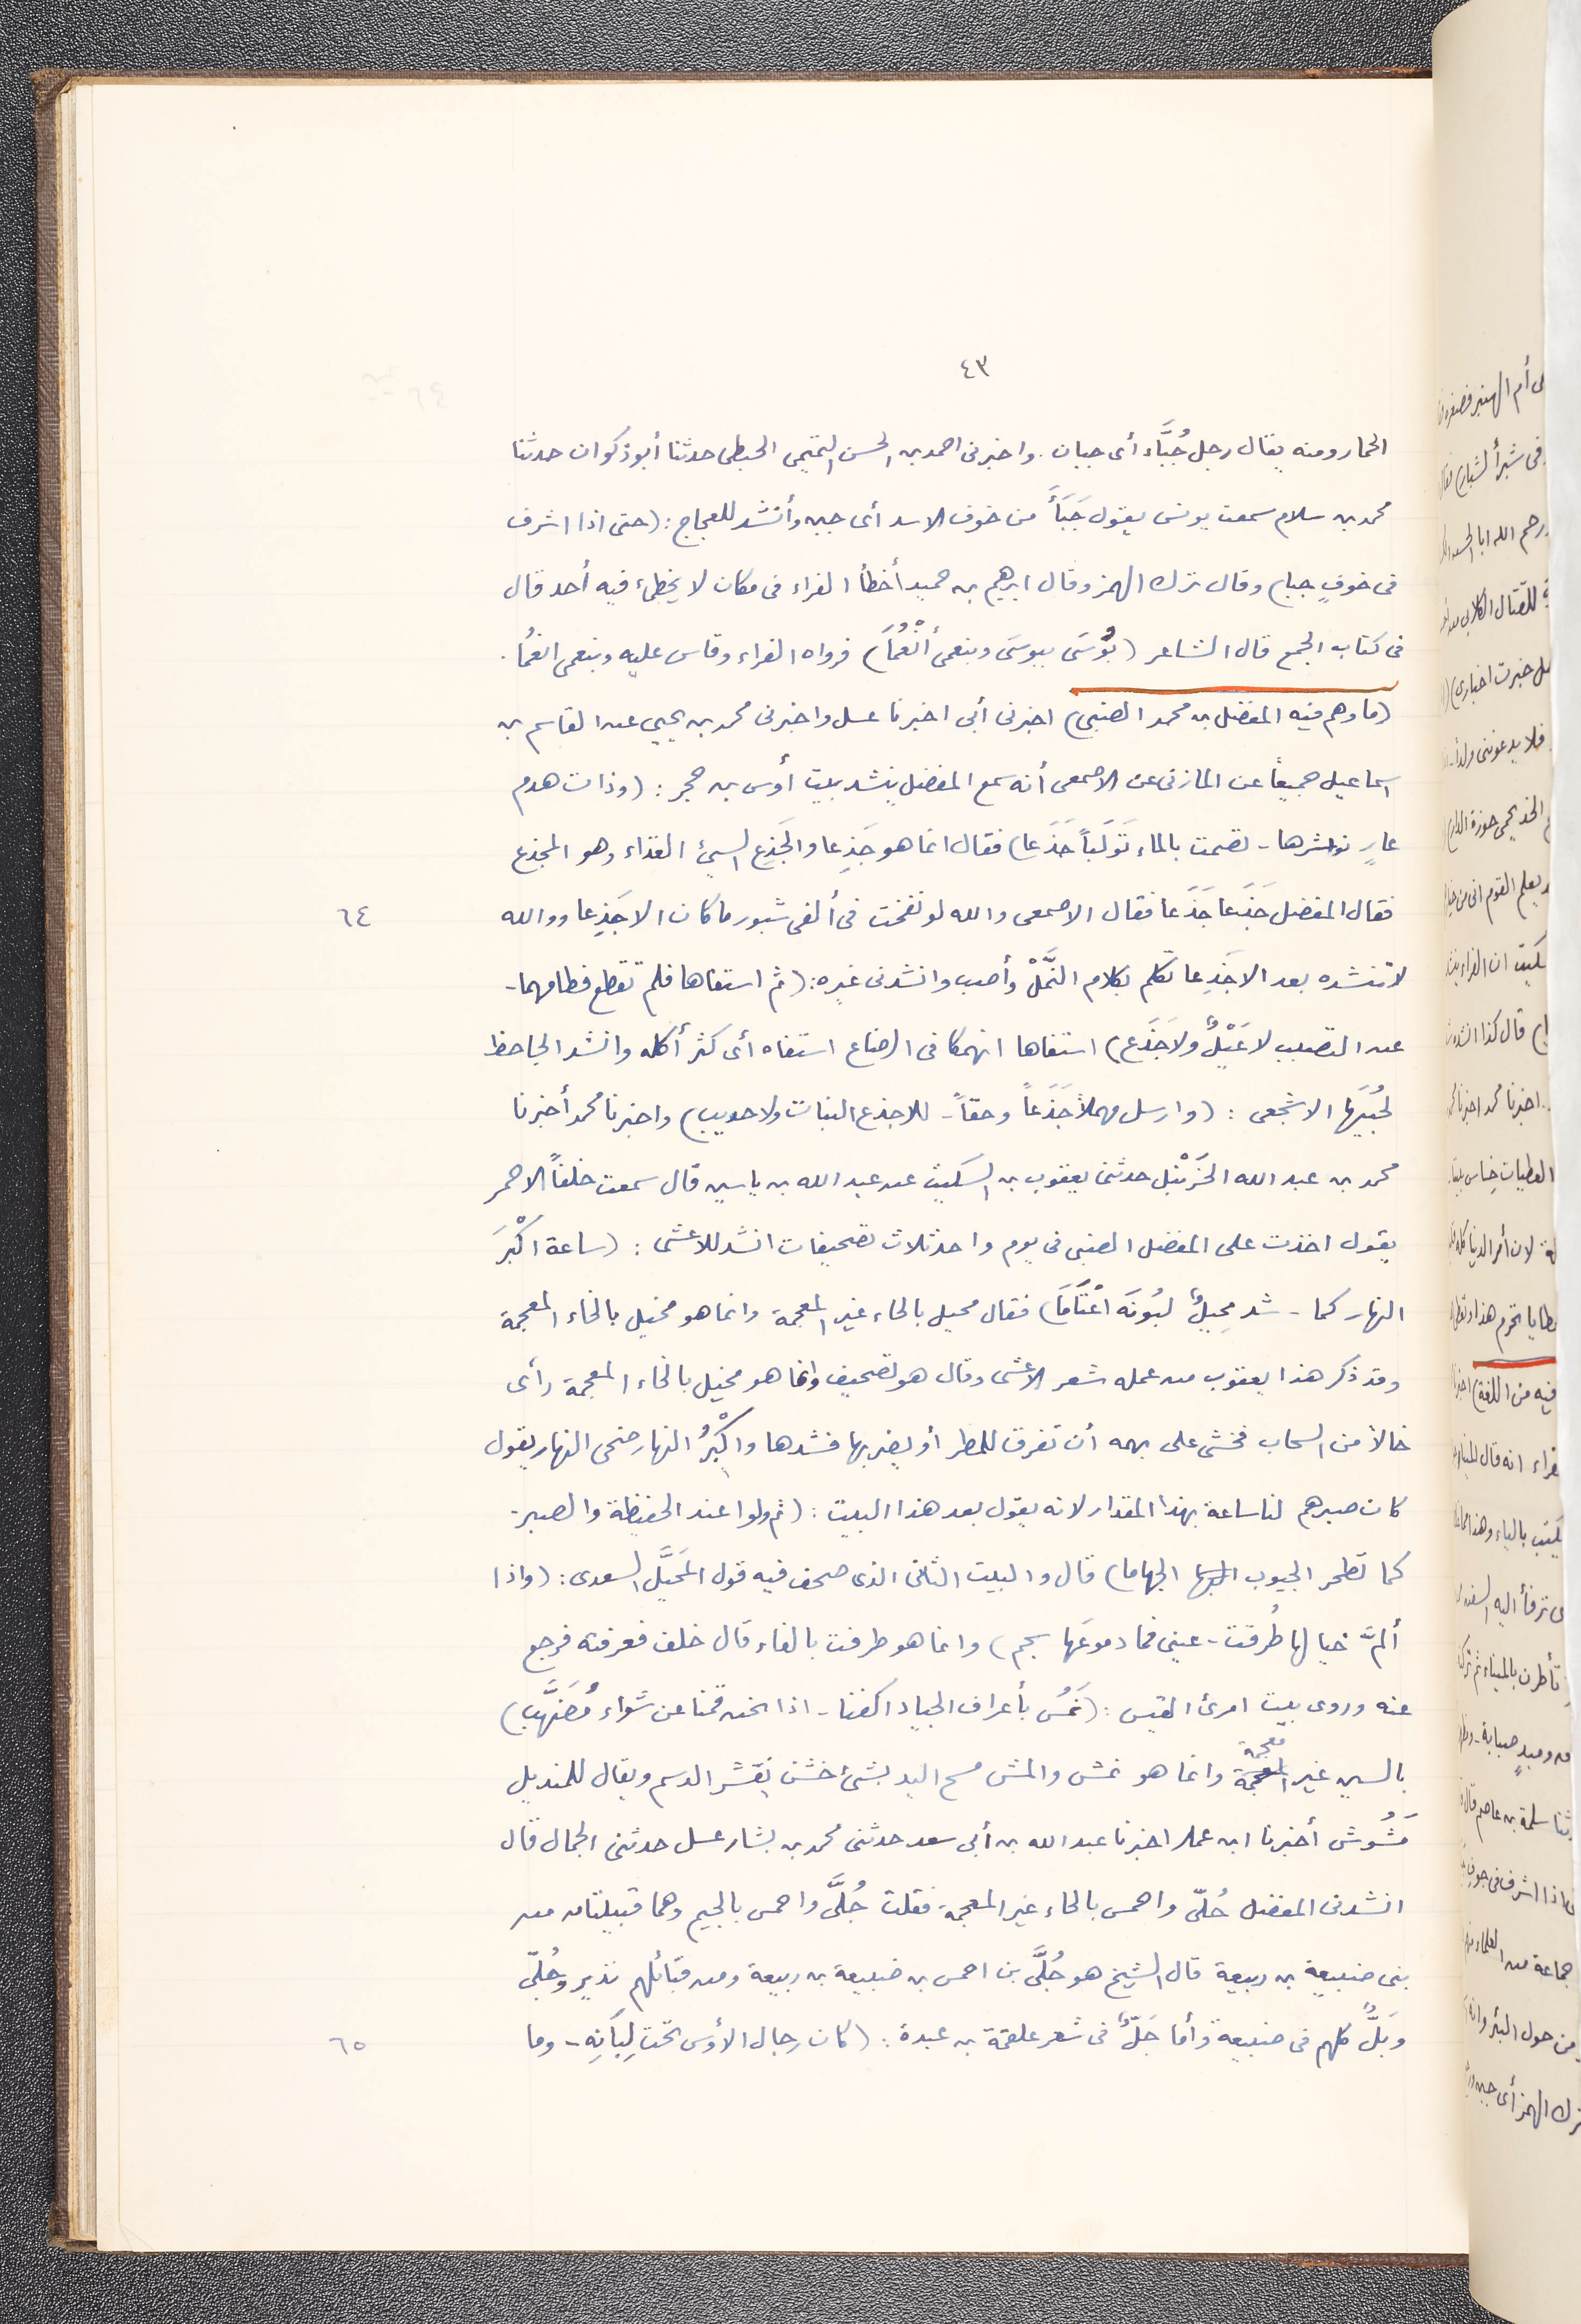 ٤٣
الحمار ومنه يقال رجل جُبَّاء أى جبان . واخبرنى احمد بن الحسن التميمى الحبطى حدثنا أبو ذكوان حدثنا
محمد بن سلام سمعت يونس يقول جَبَأَ من خوف الاسد أى جبن وأنشد للعجاج : (حتى اذا اشرف
فى خوفٍ جبا) وقال ترك الهمز وقال ابرهيم بن حميد أخطأ الفراء فى مكان لا يخطىء فيه أحد قال
فى كتاب الجمع قال الشاعر (بُوْسَى ببوسَى وبنعمى أنْعُمَا) فرواه الفراء وقاس عليه وبنعمى انعُما .
(ما وهم فيه المفضل بن محمد الضبى) اخبرنى أبى اخبرنا عسل واخبرنى محمد بن يحيى عن القاسم بن
اسماعيل جميعاً عن المازنى عن الاصمعى أنه سمع المفضل ينشد بيت أوس بن حجر : (وذات هدم
عارٍ نواشرها - تصمت بالماء تَوَلَباً جَذَعا) فقال انما هو جَذِعا والجَذِع السيئ الغذاء وهو المجذع
فقال المفضل جَذَعا جَذَعا فقال الاصمعى والله لو نفخت فى ألفى شبور ما كان الا جَذِعا ووالله
٦٤
لا تنشده بعد الا جَذِعا تكلم بكلام النَّمْلْ وأصب وانشدنى غيره : (ثم استفاها فلم تقطع فطامهما -
عن التصبب لا عَبْلٌ ولا جَذَع) استفاها انهمكا فى الرضاع استفاه أى كثر أكله وانشد الجاحظ
لجُبَيَها الاشجعى : (وارسل مهملاً جَذَعاً وحقاً - للاجذع النبات ولا حويب) واخبرنا محمد أخبرنا
محمد بن عبد الله الحَزَنْبل حدثنى يعقوب بن السكيت عن عبد الله بن ياسين قال سمعت خلفاً الاحمر
يقول اخذت على المفضل الضبى فى يوم واحد ثلاث تصحيفات انشد للاعشى : (ساعة اكْبَرَ
النهار كما - شد مِحيلٌ لبُونَه اعْتَامَا) فقال محيل بالحاء غير المعجمة وانما هو مخيل بالخاء المعجمة
وقد ذكر هذا يعقوب من عمله شعر الاعشى وقال هو تصحيف وانما هو مخيل بالخاء المعجمة رأى
خالاً من السحاب فخشى على بهمه أن تفرق للمطر أو يضر بها فشدها واكْبَرُ النهار ضحى النهار يقول
كان صبرهم لنا ساعة بهذا المقدار لانه يقول بعد هذا البيت : (ثم ولوا عند الحفيظة والصبر -
كما تطحر الجيوب الجهاما) قال والبيت الثانى الذى صحف فيه قول المخَبَّل السعدى : (واذا
ألمَّ خيالها طُرقت - عينى فما دموعَها سجم) وانما هو طرفت بالفاء قال خلف فعرفته فرجع
عنه وروى بيت امرئ القيس : (نمَسُّ بأعراف الجياد اكفنا - اذا نحن قمنا عن شواء مُضَهَّبِ)
بالسين غير المعجمة وانما هو نمش والمش مسح اليد بشئ خشن يقشر الدسم ويقال للمنديل
مَشُوش أخبرنا ابن عمار اخبرنا عبد الله بن أبى سعد حدثنى محمد بن بشار عسل حدثنى الجمال قال
انشدنى المفضل حُلىّ واحمس بالحاء غير المعجمة فقلت جُلىَّ واحمس بالجيم وهما قبيلتان من
بنى ضبيعة بن ربيعة قال الشيخ هو جُلَّى بن احمس بن ضبيعة بن ربيعة ومن قبائلهم نذير وجُلىّ
وبَلٌّ كلهم فى ضبيعة وأما جَلٌّ فى شعر علقمة بن عبدة : (كان رجال الأوس تحت لِبَانِهِ - وما
٦٥